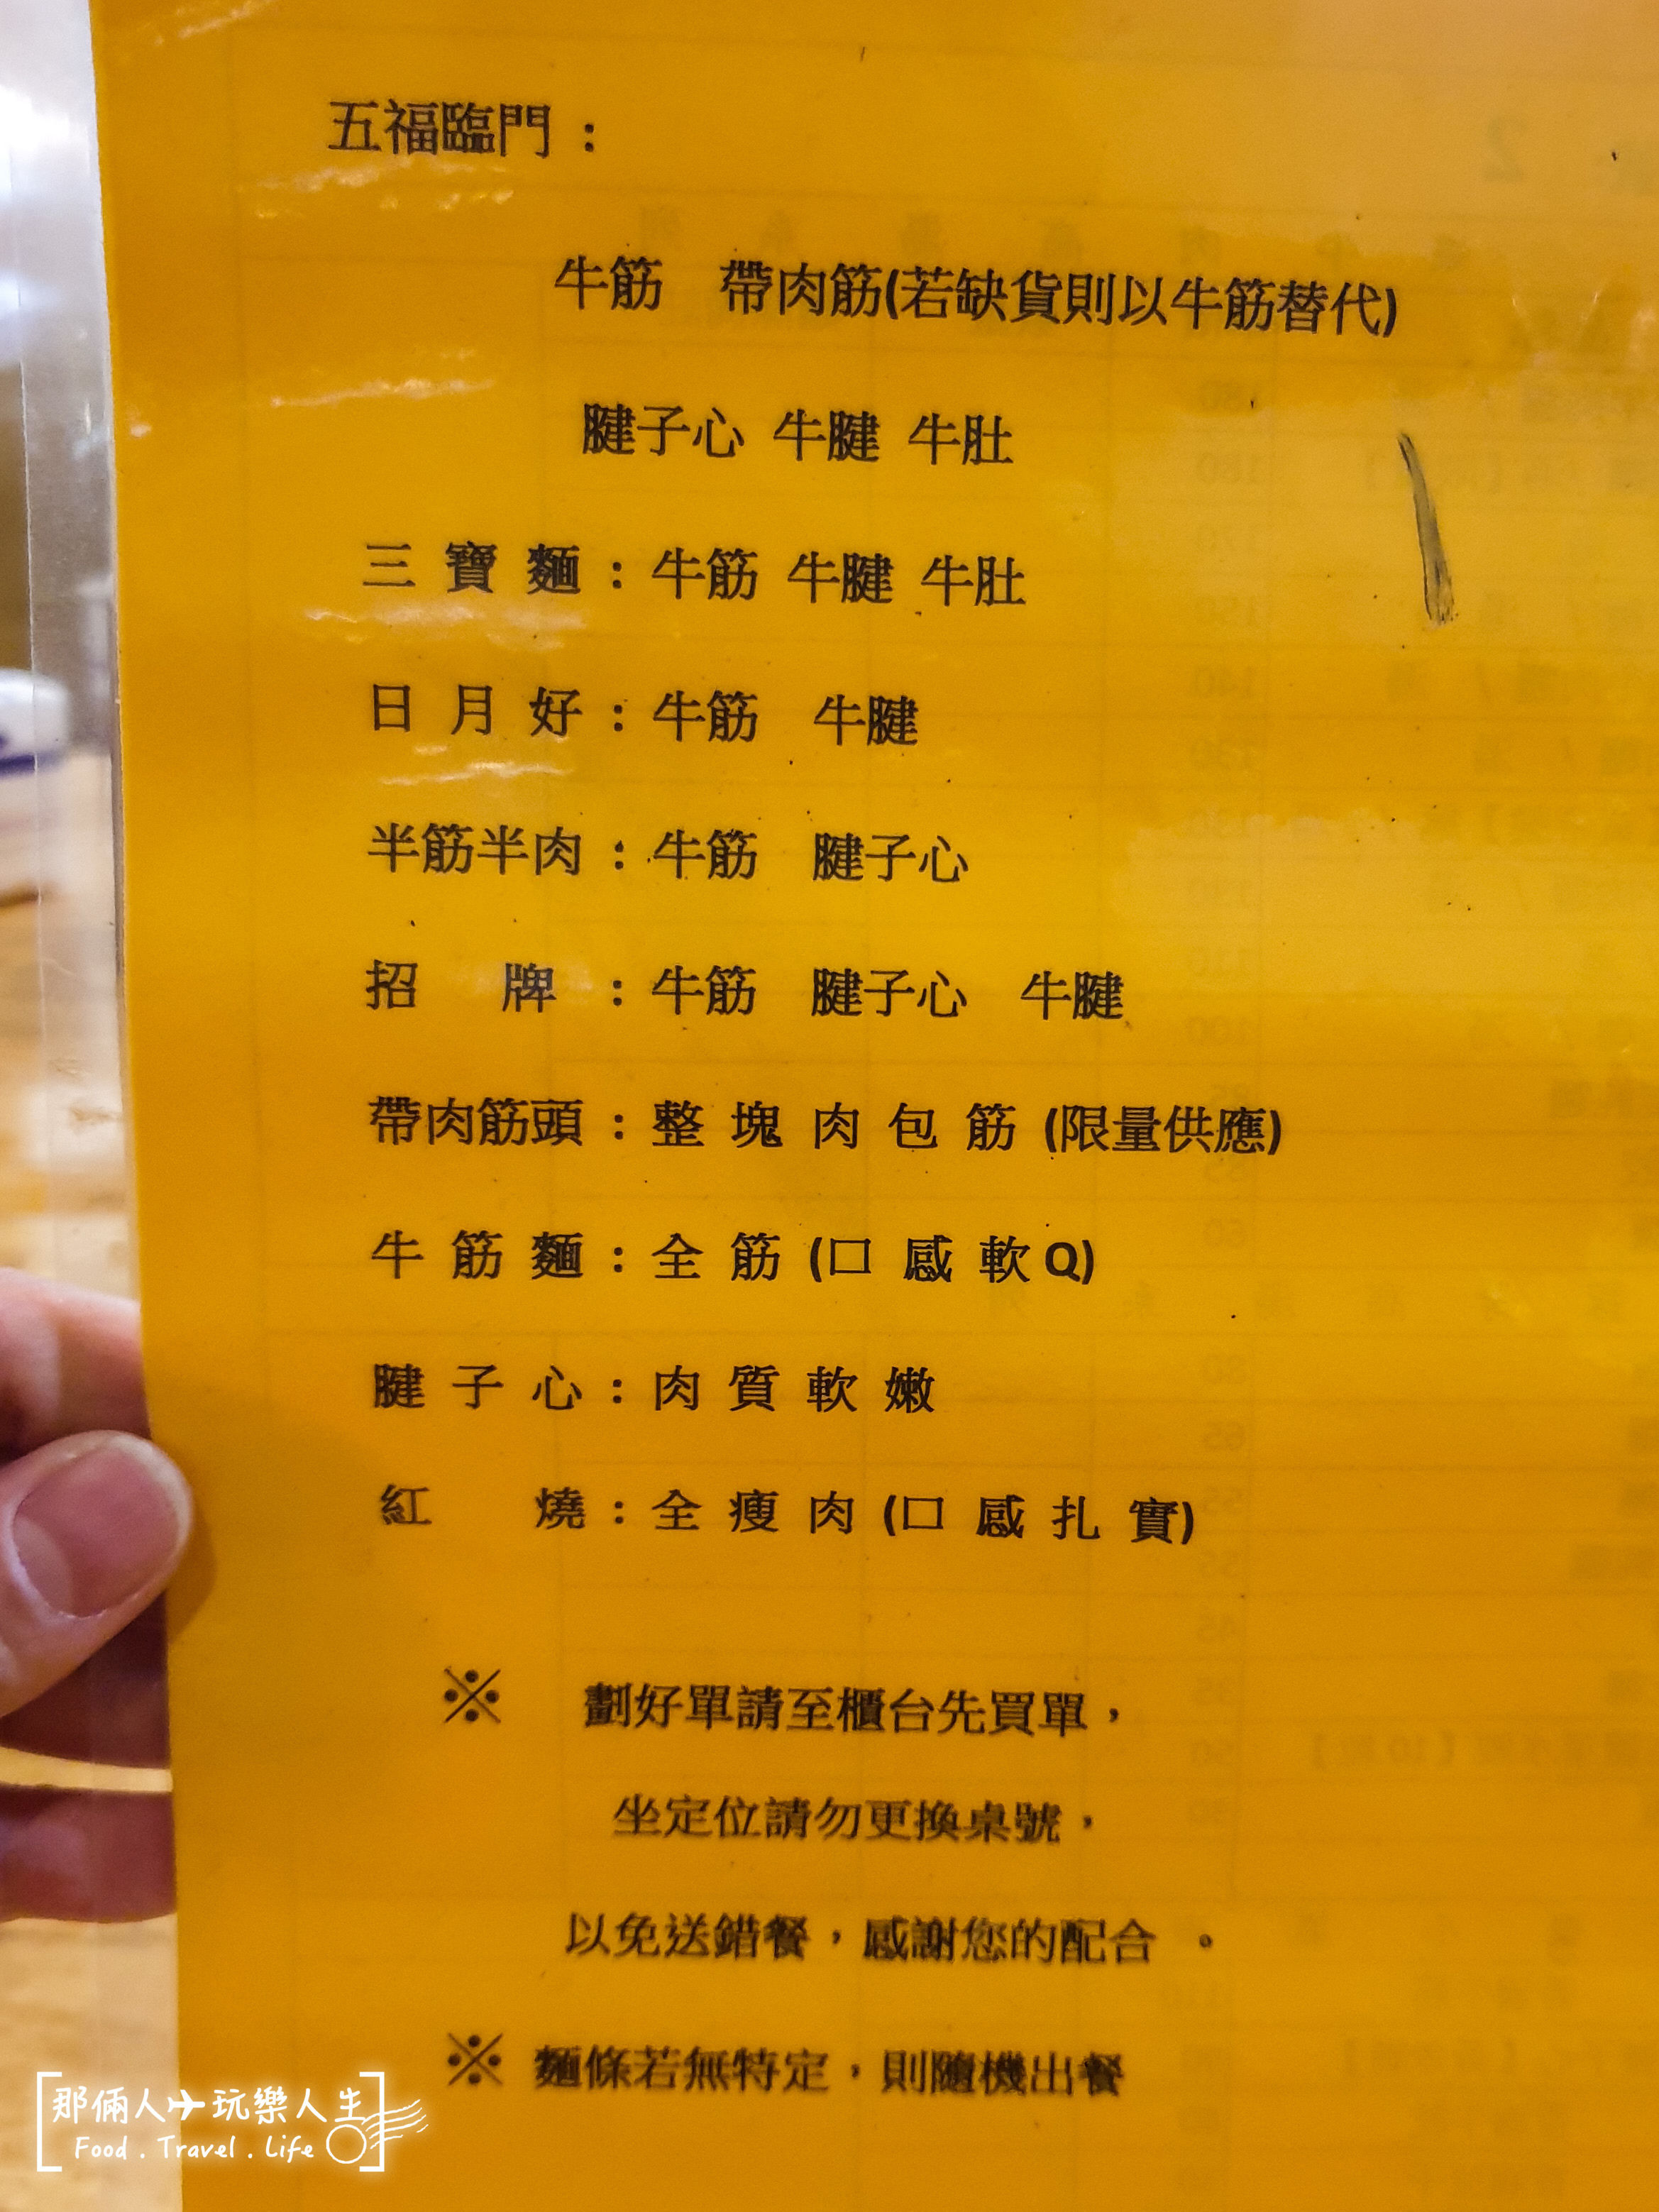 五福臨門：
牛筋　帶肉筋(若缺貨則以牛筋替代)
腱子心 牛腱 牛肚
三 寶 麵：牛筋 牛腱 牛肚
日 月 好：牛筋　牛腱
半筋半肉：牛筋　腱子心
招　牌：牛筋　腱子心　牛腱
帶肉筋頭：整 塊 肉 包 筋 (限量供應)
牛 筋 麵：全 筋 (口 感 軟 Q)
腱 子 心：肉 質 軟 嫩
紅　燒：全 瘦 肉 (口 感 扎 實)
※　劃好單請至櫃台先買單，
坐定位請勿更換桌號，
以免送錯餐，感謝您的配合 。
※ 麵條若無特定，則隨機出餐
那倆人✈玩樂人生
Food . Travel . Life